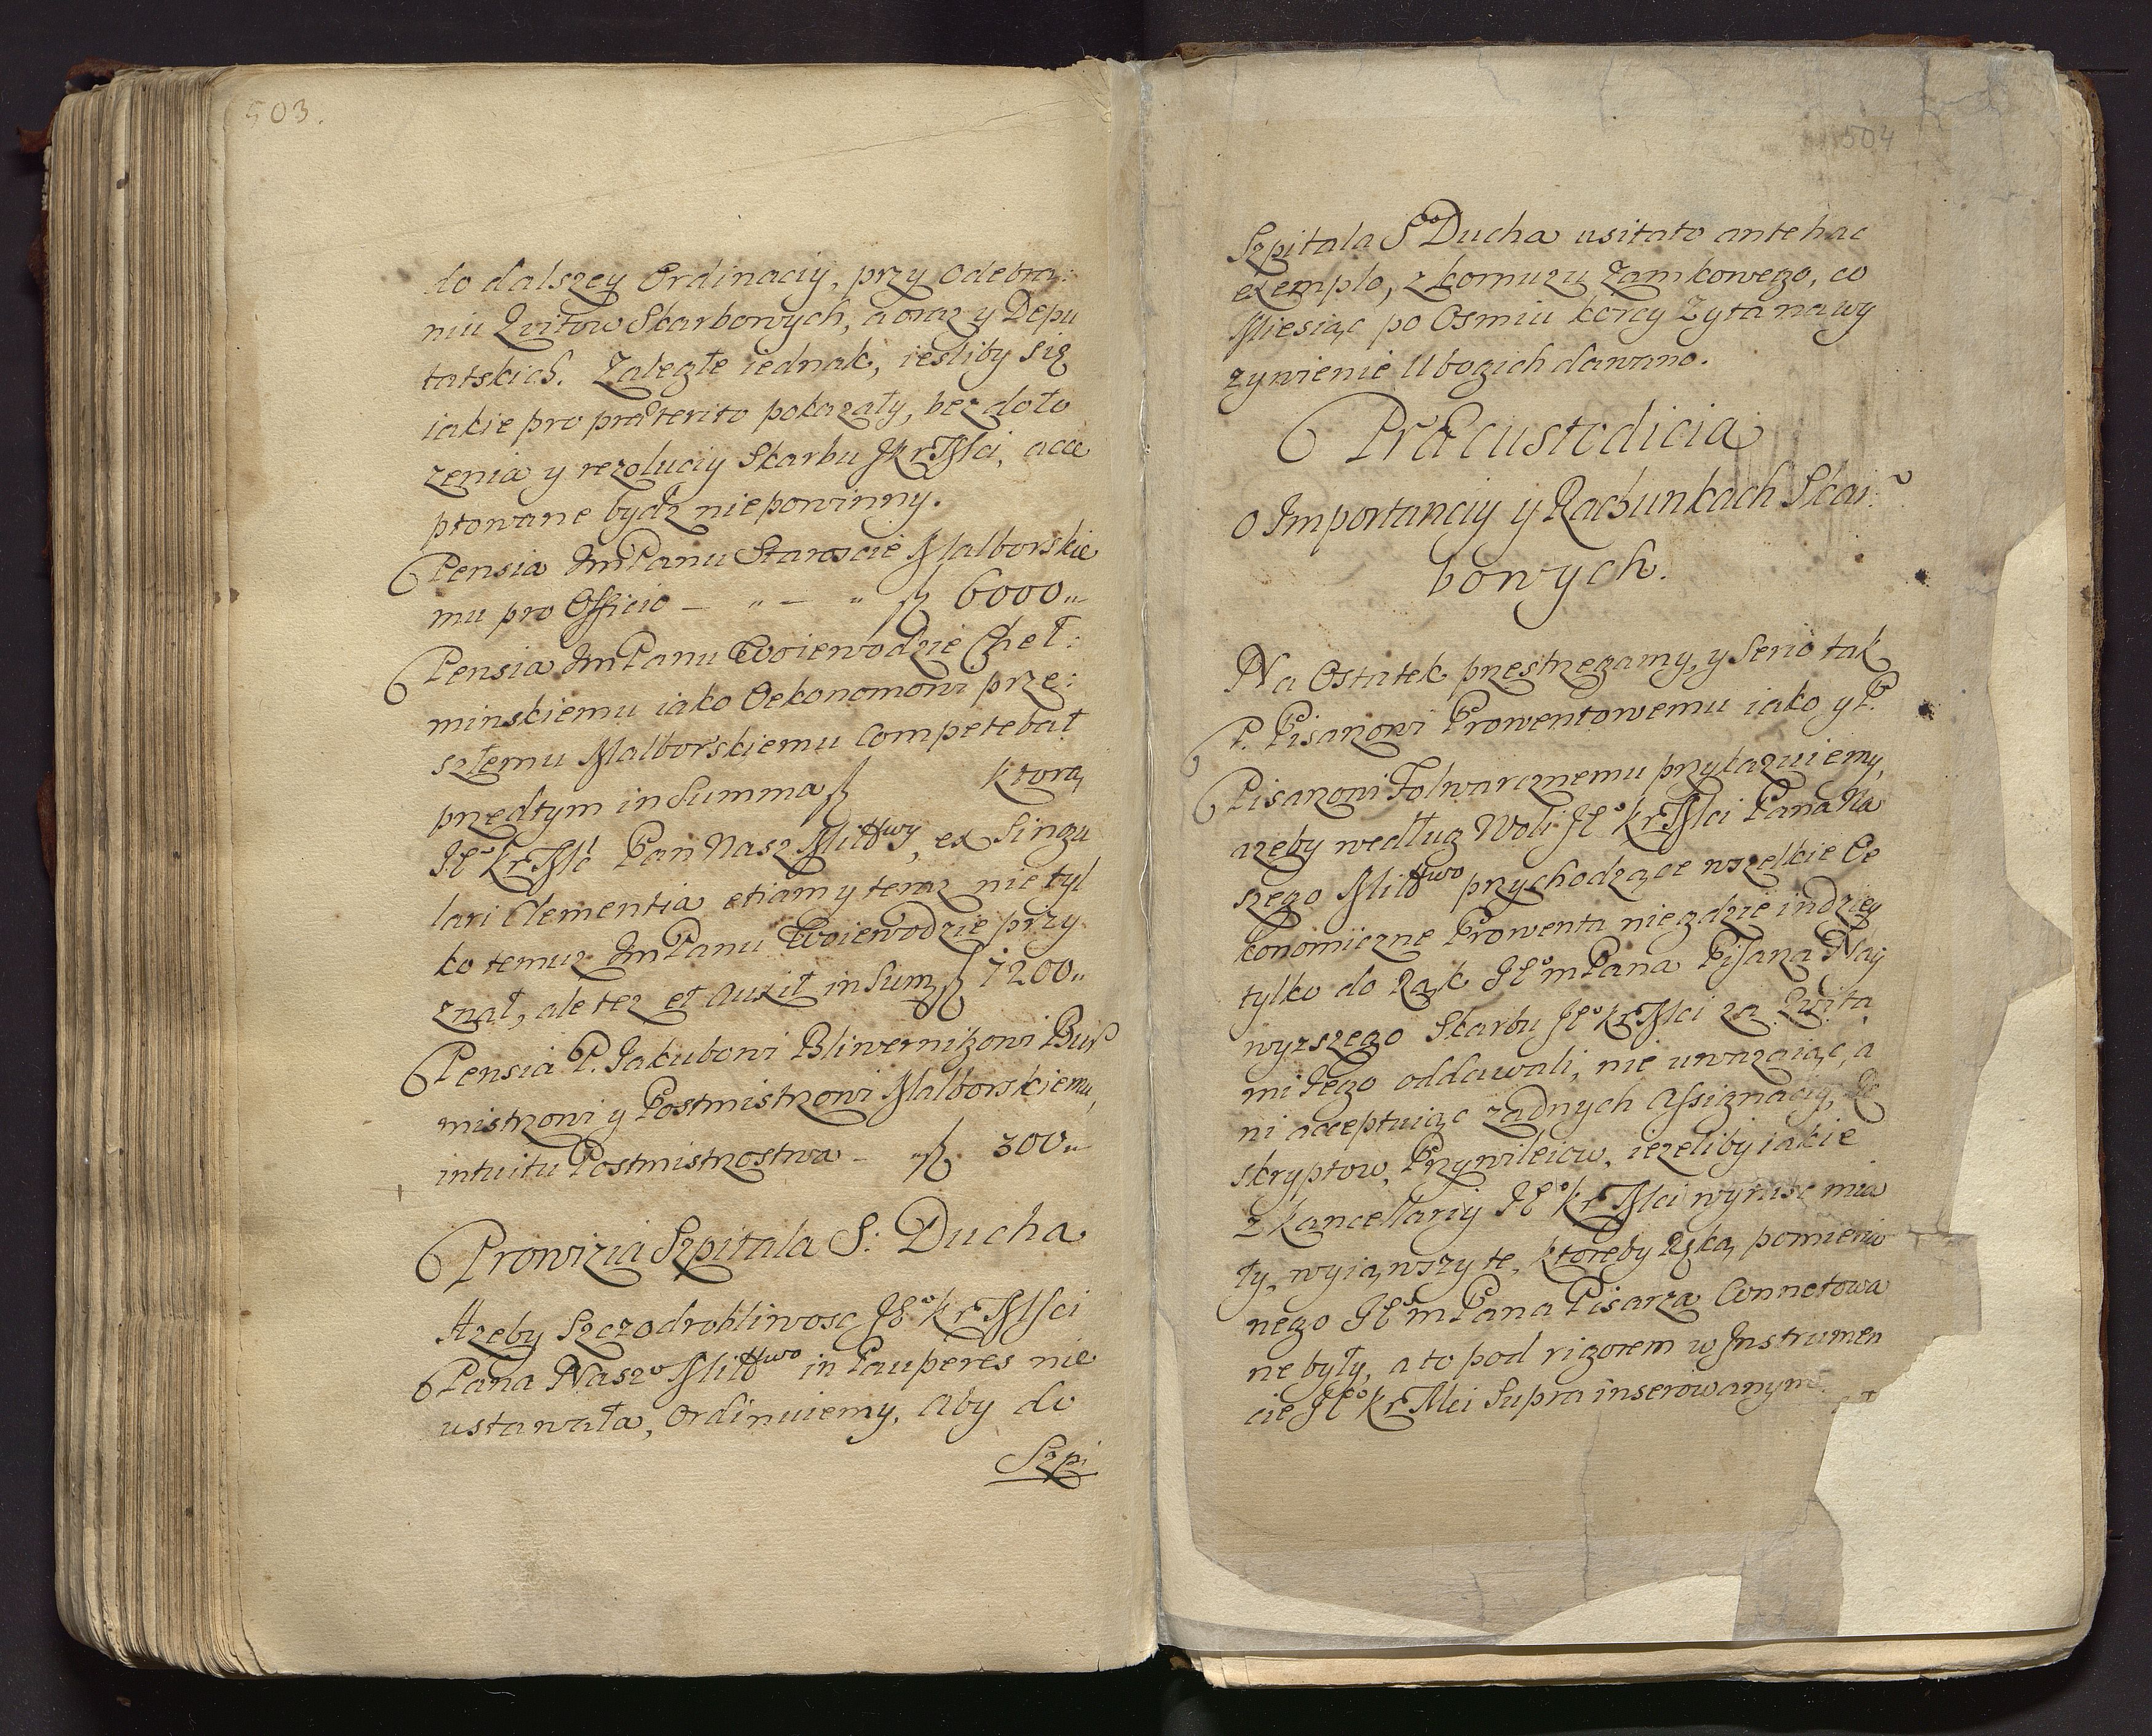 503.
do dalszey Ordinaciy, przy Odebra:
niu Qvitow Skarbowych, a oraz y Depu
tatskich. Zaległe iednak, iesliby się
iakie pro præterito pokazały, bez doło
zenia y rezoluciy Skarbu JKrMsci, acce
ptowane bydz niepowinny.
Pensia JmPanu Staroscie Malborskie
mu pro Officio — " — " fl 6000"
Pensia JmPanu Woiewodzie Cheł:
minskiemu iako Oekonomowi prze:
szłemu Malborskiemu Competebat
przedtym in Summa fl ktorą
JEo KrMsć Pan Nasz Miłłwy, ex Singu
lari Clementia etiam y teraz nie tyl
ko temuz JmPanu Woiewodzie przy
znał, ale tez et auxit in Sum fl 7200"
Pensia P. Jakubowi Bliwernizowi Bur
mistrzowi y Postmistrzowi Malborskiemu,
intuitu Postmistrzostwa — "fl. 300"
Prowizia Szpitala S: Ducha
Azeby Szczodrobliwosc JEo KrMsci
Pana Naszo Miłłwo in Pauperes nie
ustawała, Ordinuiemy, aby do
Szpi
504
Szpitala So Ducha usitato antehac
exemplo, z komuzu Zamkowego, co
Miesiąc po Osmiu korcy Zyta na wy
zywienie Ubogich dawano.
Præcustodicia
o Importanciy y Rachunkach Skar:
bowych.
Na Ostatek przestrzegamy, y Serio tak
P. Pisarzowi Prowentowemu iako y P.
Pisarzowi Folwarcznemu przykazuiemy,
azeby według Woli JEo KrMsci Pana Na
szego Miłłwo przychodzące wszelkie Oe
konomiczne Prowenta niegdzie indziey
tylko do Rąk JEo mPana Pisarza Nay
wyzszego Skarbu JEo KrMsci za Qvita
mi Jego oddawali, nie uwazaiąc, a
ni acceptuiąc zadnych Assignaciy, Re
skryptow, Przywileiow, iezeliby iakie
z Kancellariy JEo KrMsci wyniść mia
ły, wyiąwszy te, ktoreby Ręką pomienio
nego JEo mPana Pisarza Connotowa
ne były, a to pod rigorem w Instrumen
cie JEo KrMsci Supra inserowanym.